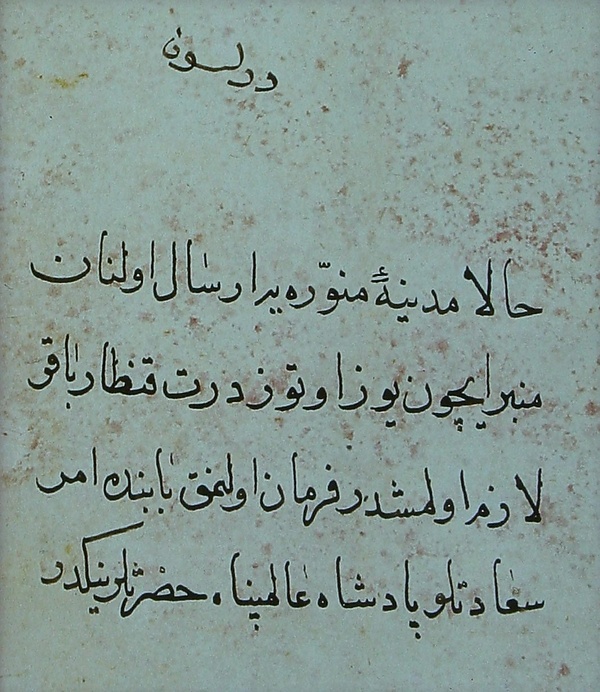 دركسون
حالا مدينهٔ منوّره يه ارسال اولنان
منبر ايچون يوز اوتوز درت قنطار باقر
لازم اولمشدر فرمان اولنمق بابنده امر
سعادتلو پادشاه عالمپناه حضرتلرينكدر